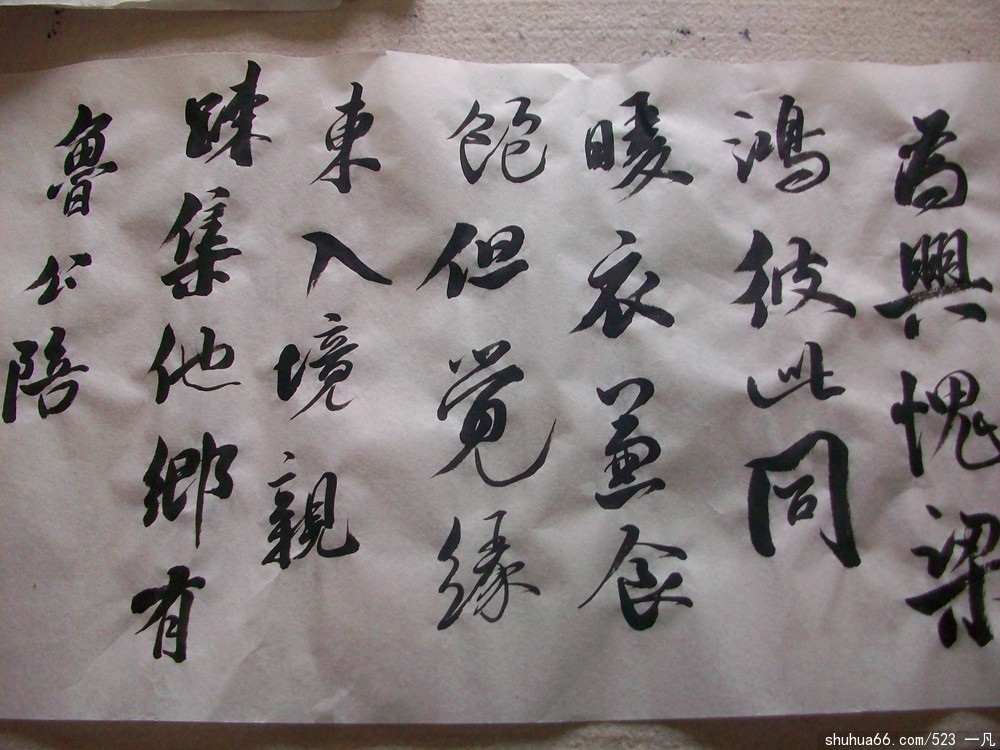 為興愧梁
鴻彼此同
暖衣兼食
飽但覓緣
東入境親
踈集他鄉有
魯公陪
shuhua66.com/523 一凡